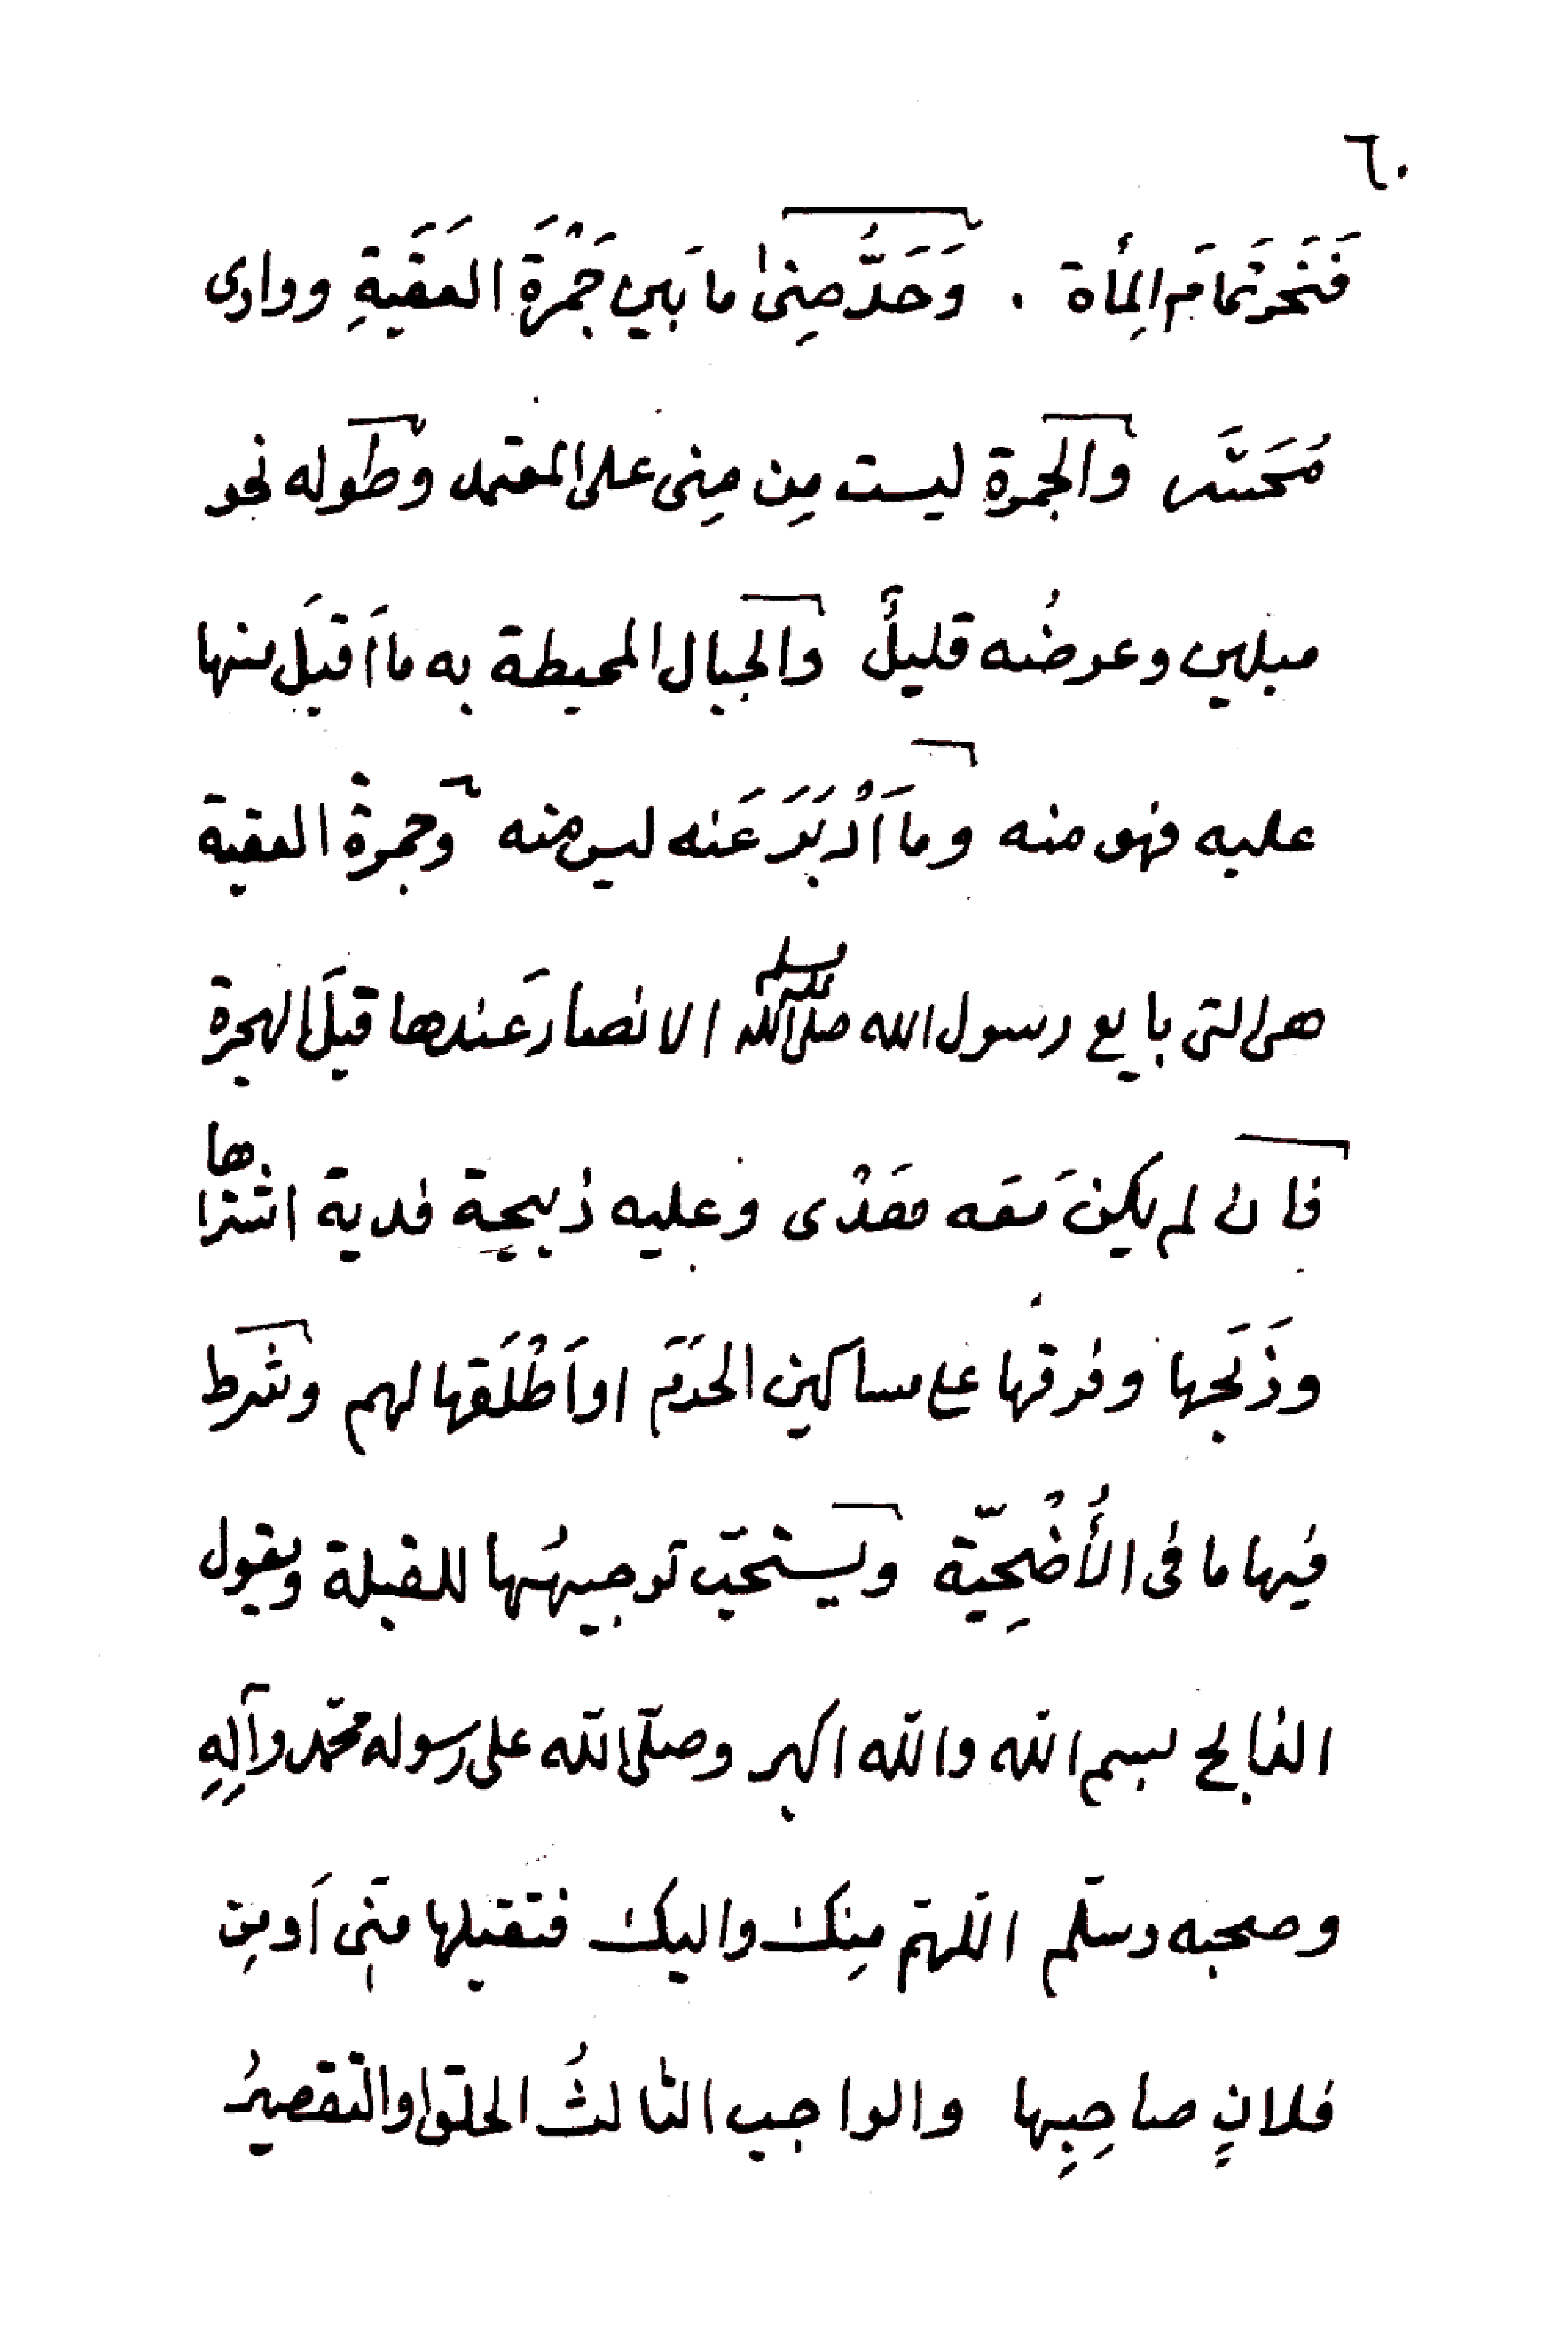 ٦٠
فَنَحَرَ تَمَامَ المِأة . وَحَدُّ مِنىٰ ما بَين جَمْرَةِ العَقَبَةِ ووادى
مُحَسَّر والجمرة ليست مِن مِنى على المعتمد وطوله نحو
ميلين وعرضُه قليلٌ والجبال المحيطة به ما اَقبَلَ منها
عليه فهو منه وما اَدْبَرَ عَنه ليس منه وجمرةُ العقبة
هى التى بايع رسول الله صلى الله عليه وسلم الانصارَ عندها قبلَ الهجرة
فان لم يكن مَعَه هَدْى وعليه ذبيحةِ فدية اشتراها
وذَبَحَها وفرقها على مساكين الحَرَمِ او اَطْلَقها لهم وشرط
فيها ما فى الأُضْحِيّة ويستحبّ توجيهُها للقبلة ويقول
الذابح بسم الله والله اكبر وصلّى الله على رسوله محمّد وآلِهِ
وصحبه وسلّم اللّهمّ مِنك واليك فتقبلها مِنّى اَو مِن
فلانٍ صاحِبِها والواجب الثالثُ الحلق او التقصيرُ